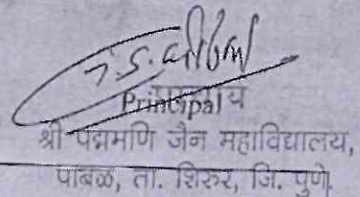 Principal
श्री पद्ममणि जैन महाविद्यालय,
पाबळ, ता. शिरुर, जि. पुणे.